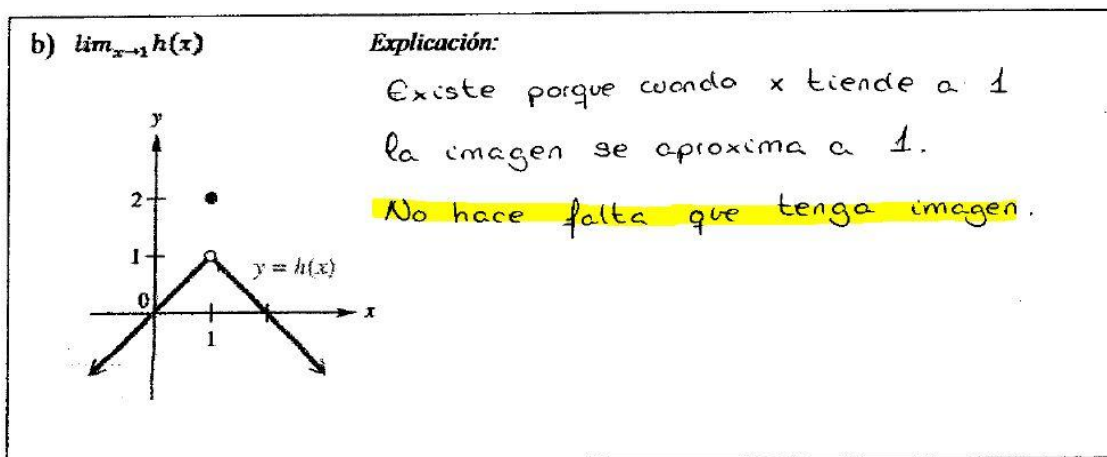 b) lim_{x→1} h(x)
Explicación:
Existe porque cuando x tiende a 1
la imagen se aproxima a 1.
No hace falta que tenga imagen.
y
2
1
y = h(x)
0
x
1